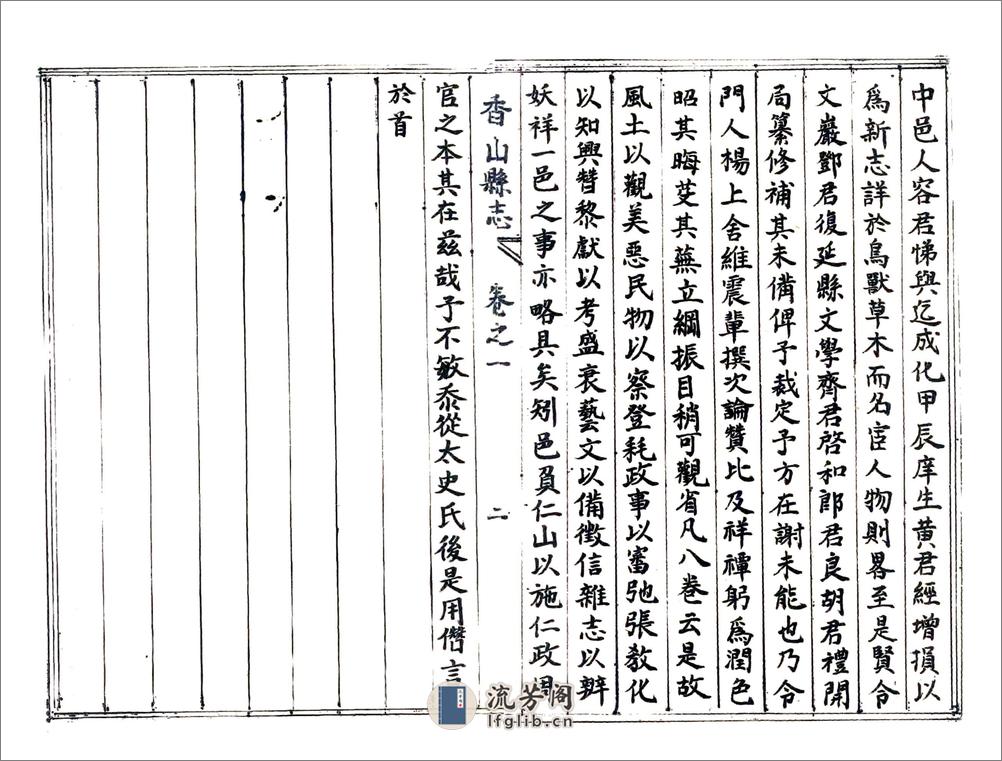 中邑人容君悌與迄成化甲辰庠生黄君經增損以
爲新志詳於鳥獸草木而名宦人物則畧至是賢令
文巖鄧君復延縣文學齊君啓和郎君良胡君禮開
局纂修補其未備俾予裁定予方在謝未能也乃令
門人楊上舍維震輩撰次論贊比及祥禫躬爲潤色
昭其晦芟其蕪立綱振目稍可觀省凡八巻云是故
風土以觀美惡民物以察登耗政事以審弛張敎化
以知興替黎獻以考盛衰藝文以備徵信雜志以辨
妖祥一邑之事亦略具矣矧邑負仁山以施仁政周
香山縣志 卷之一 二
官之本其在兹哉予不敏忝從太史氏後是用僭言
於首
流芳阁
lfglib.cn